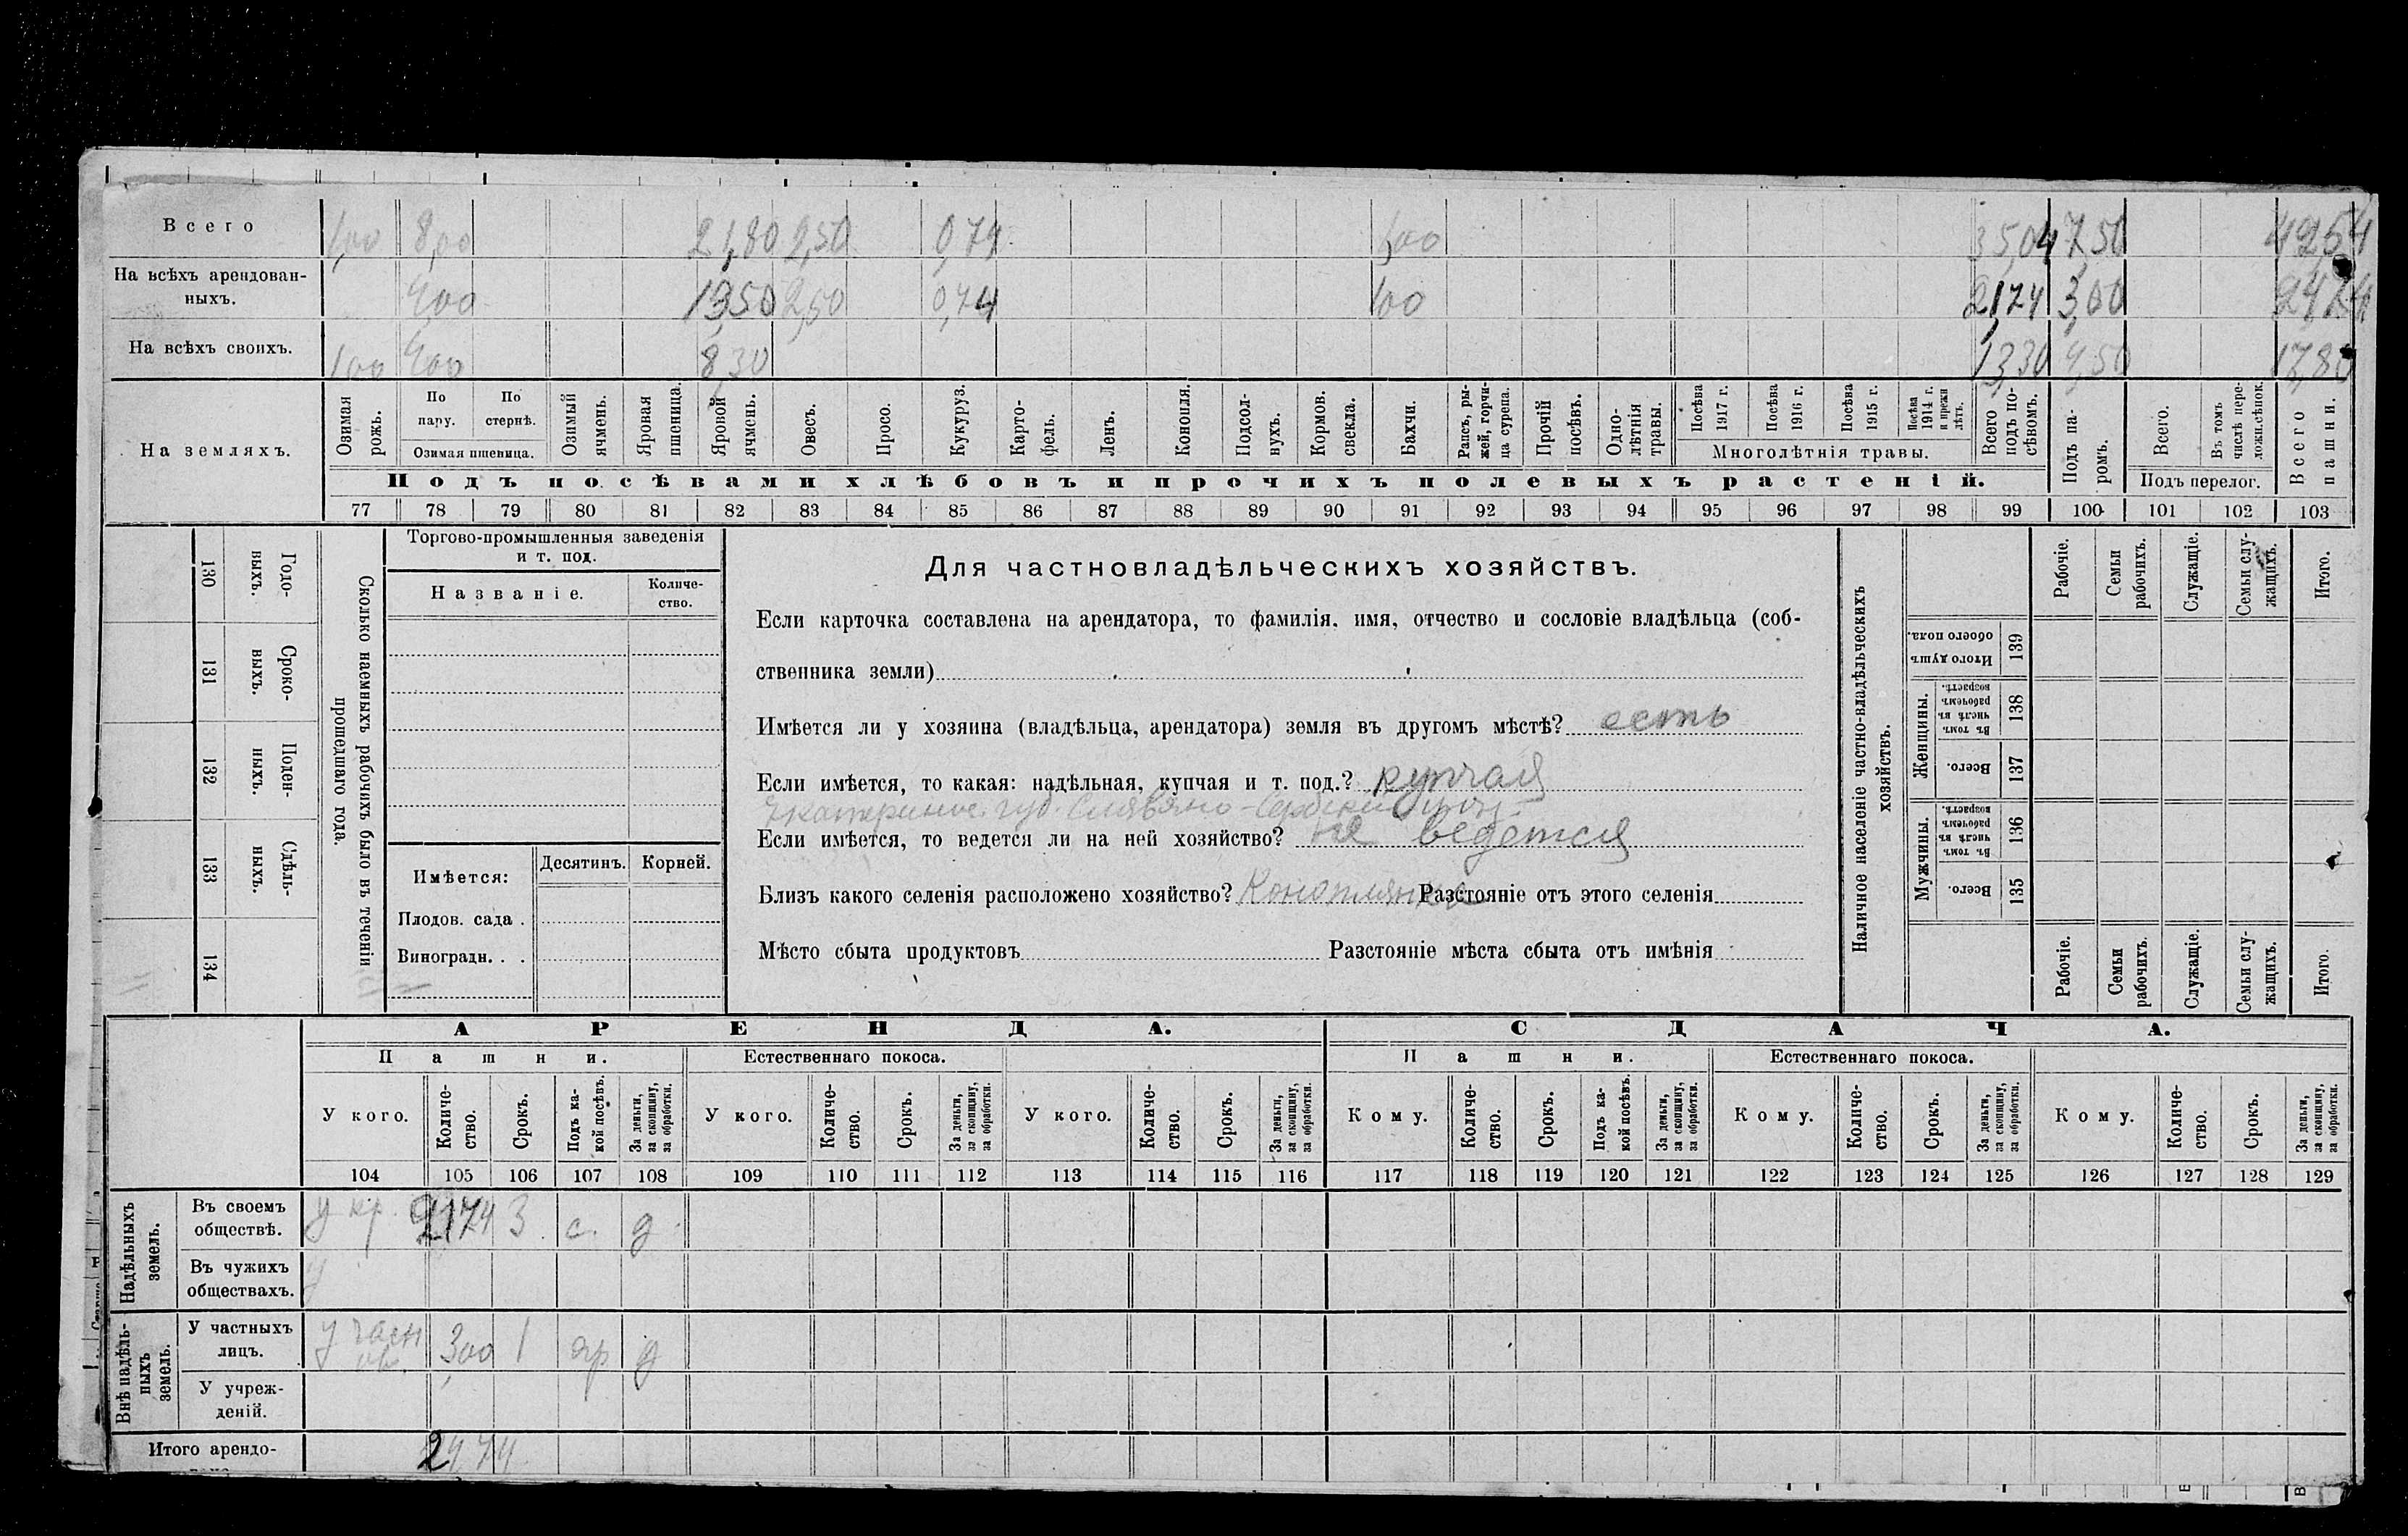 Всего 1,00 8,00 21,80 2,50 0,74 1,00 35,04 7,50 42,54
На всѣхъ арендован-
ныхъ. 4,00 13,50 2,50 0,74 1,00 21,74 3,00 24,74
На всѣхъ своихъ. 1,00 4,00 8,30 13,30 4,50 17,80
На земляхъ.
Озимая рожь.
По пару.
По стернѣ.
Озимая пшеница.
Озимый ячмень.
Яровая пшеница.
Яровой ячмень.
Овесъ.
Просо.
Кукуруз.
Карто-
фель.
Ленъ.
Конопля.
Подсол-
нухъ.
Кормов.
свекла.
Бахчи.
Рапсъ, ры-
жей, горчи-
ца сурепа.
Прочій
посѣвъ.
Одно-
лѣтнія
травы.
Посѣва
1917 г.
Посѣва
1916 г.
Посѣва
1915 г.
Посѣва
1914 г.
и прежн
лѣтъ.
Многолѣтнія травы.
Всего
подъ по-
сѣвомъ.
Подъ па-
ромъ.
Всего.
Въ томъ
числѣ пере-
ложн.сѣнок.
Подъ перелог.
Всего
пашни.
Подъ посѣвами хлѣбовъ и прочихъ полевыхъ растеній.
77 78 79 80 81 82 83 84 85 86 87 88 89 90 91 92 93 94 95 96 97 98 99 100 101 102 103
Годо-
выхъ.
130
Сроко-
выхъ.
131
Поден-
ныхъ.
132
Сдѣль-
ныхъ.
133
134
Сколько наемныхъ рабочихъ было въ теченіи
прошедшаго года.
Торгово-промышленныя заведенія
и т. под.
Названіе.
Количе-
ство.
Имѣется:
Десятинъ.
Корней.
Плодов. сада .
Виноградн. . .
Для частновладѣльческихъ хозяйствъ.
Если карточка составлена на арендатора, то фамилія, имя, отчество и сословіе владѣльца (соб-
ственника земли)
Имѣется ли у хозяина (владѣльца, арендатора) земля въ другомъ мѣстѣ? есть
Если имѣется, то какая: надѣльная, купчая и т. под.? купчая
Екатеринос. губ. Славяно-Сербскій
Если имѣется, то ведется ли на ней хозяйство? не ведётся
Близъ какого селенія расположено хозяйство? Разстояніе отъ этого селенія
Мѣсто сбыта продуктовъ Разстояніе мѣста сбыта отъ имѣнія
Наличное населеніе частно-владѣльческихъ
хозяйствъ.
Рабочіе.
Семьи
рабочихъ.
Служащіе.
Семьи слу-
жащихъ.
Итого.
Итого душ
обоего пола.
139
Женщины.
Въ томъ
числѣ въ
рабочемъ
возрастѣ.
138
Всего.
137
Мужчины.
Въ томъ
числѣ въ
рабочемъ
возрастѣ.
136
Всего.
135
Рабочіе.
Семьи
рабочихъ.
Служащіе.
Семьи слу-
жащихъ.
Итого.
АРЕНДА. СДАЧА.
Пашни. Естественнаго покоса. Пашни. Естественнаго покоса.
У кого.
Количе-
ство.
Срокъ.
Подъ ка-
кой посѣвъ.
За деньги,
за скопщину,
за обработки.
У кого.
Количе-
ство.
Срокъ.
За деньги,
за скопщину,
за обработки.
У кого.
Количе-
ство.
Срокъ.
За деньги,
за скопщину,
за обработки.
Кому.
Количе-
ство.
Срокъ.
Подъ ка-
кой посѣвъ.
За деньги,
за скопщину,
за обработки.
Кому.
Количе-
ство.
Срокъ.
За деньги,
за скопщину,
за обработки.
Кому.
Количе-
ство.
Срокъ.
За деньги,
за скопщину,
за обработки.
104 105 106 107 108 109 110 111 112 113 114 115 116 117 118 119 120 121 122 123 124 125 126 127 128 129
Надѣльныхъ
земель.
Въ своемъ
обществѣ.
у кр. 2174 3 с. д.
Въ чужихъ
обществахъ.
у
Внѣ надѣль-
ныхъ
земель.
У частныхъ
лицъ.
у част 3,00 1 яр д
У учреж-
деній.
Итого арендо-
24,74